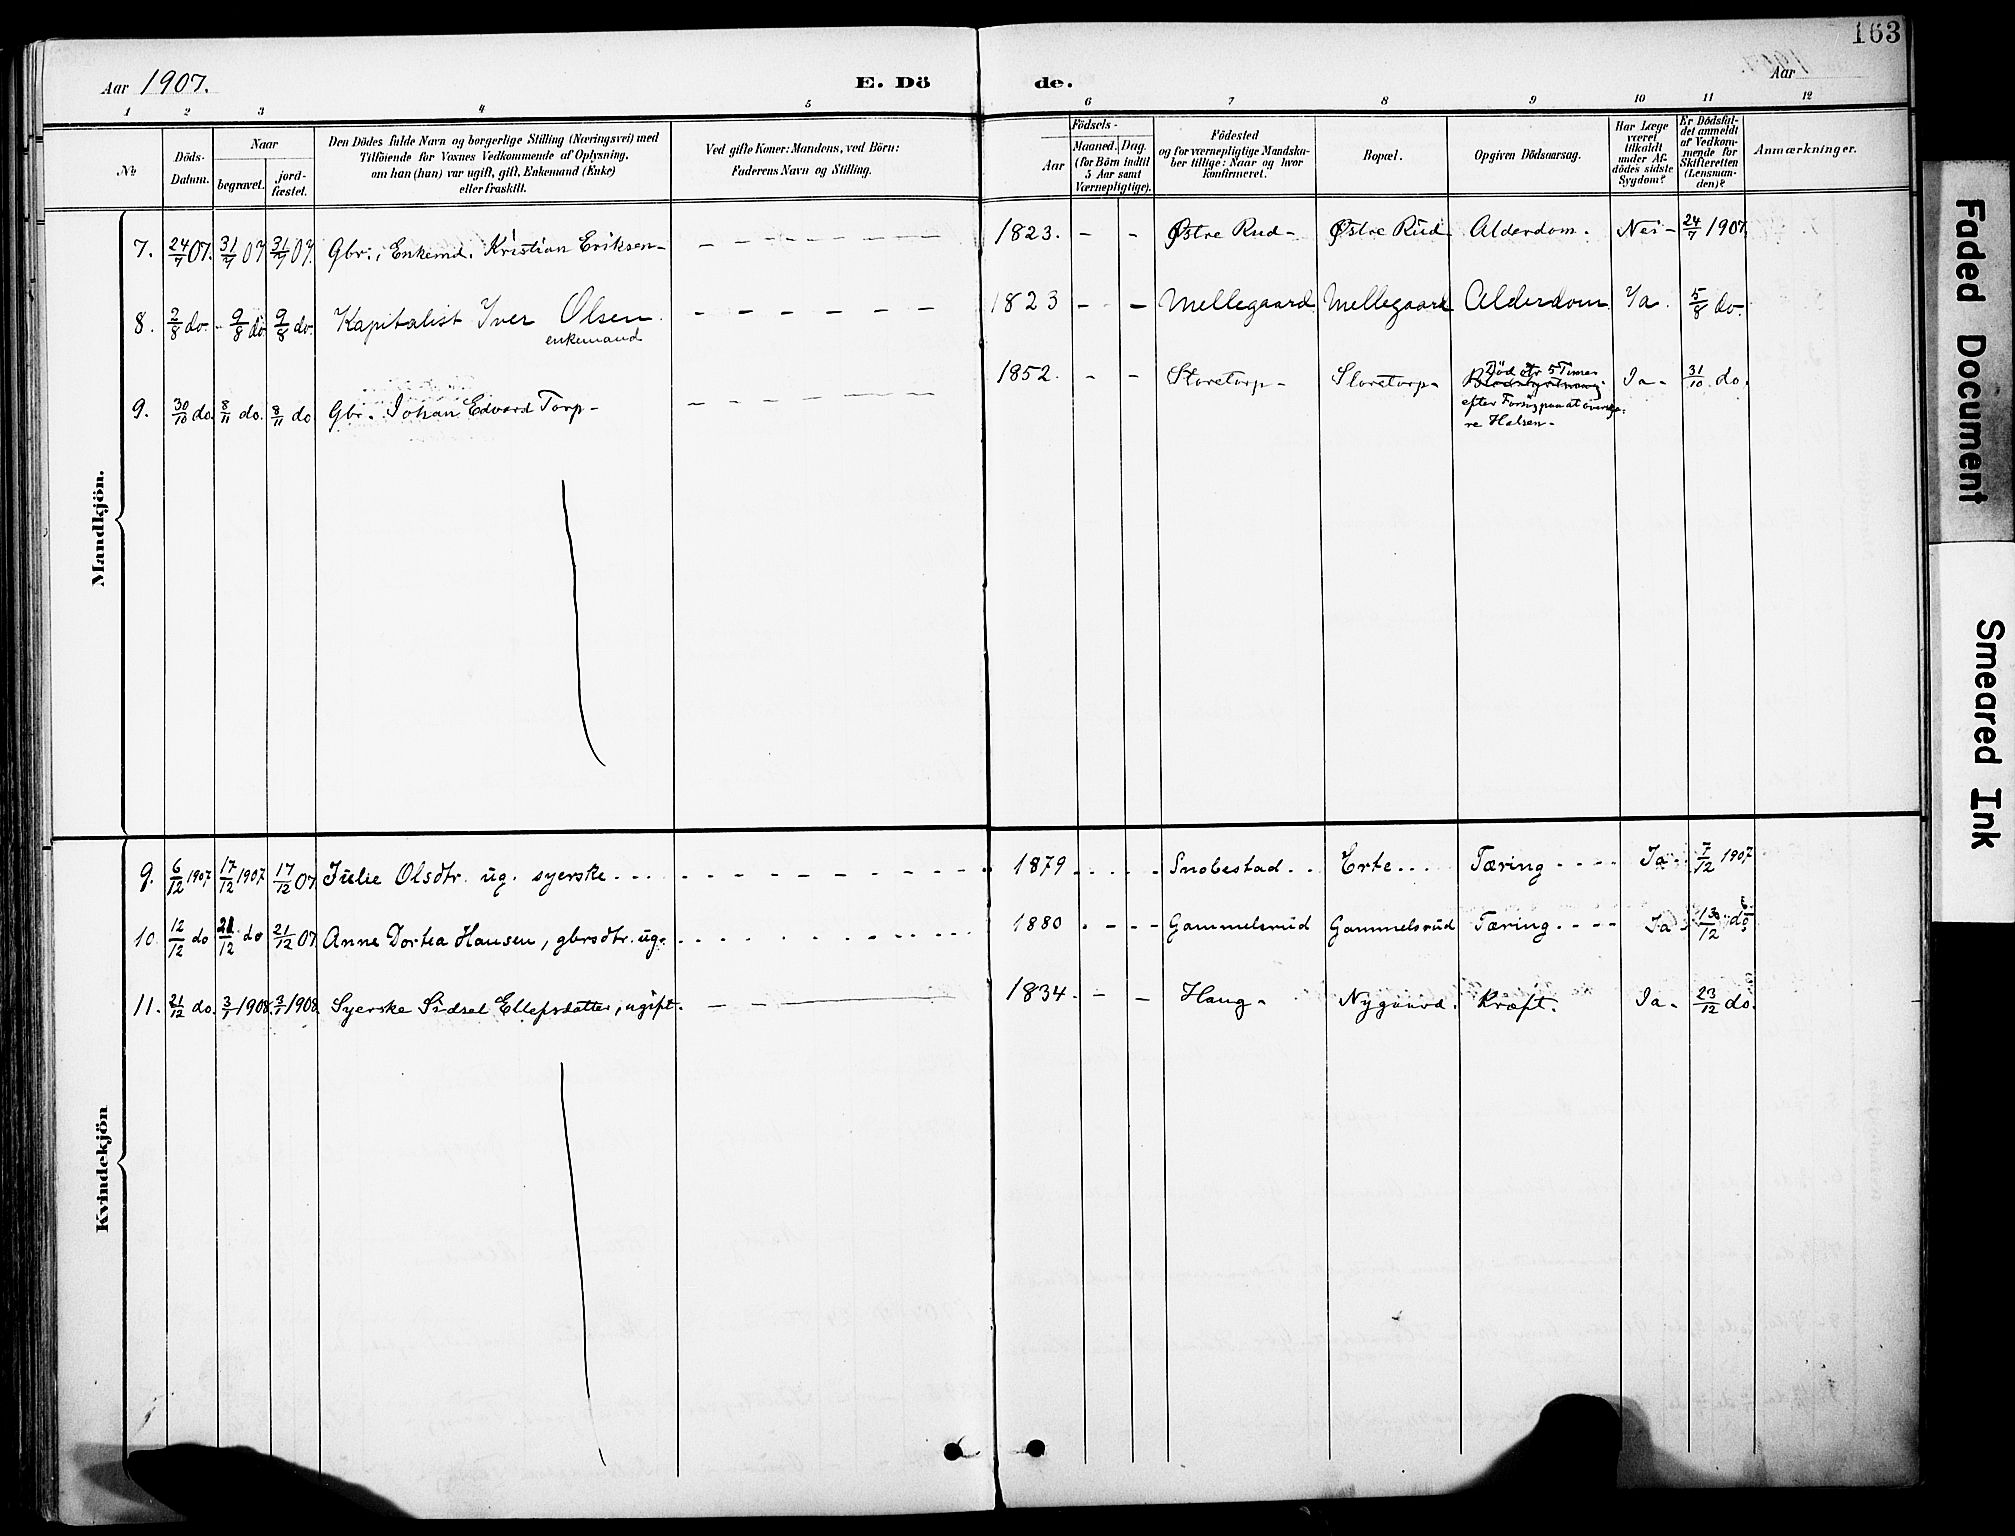 163
Aar 1907. E. Dö de. Aar
1 2 3 4 5 6 7 8 9 10 11 12
No
Döds-Datum.
Naar
begravet.
jord-fæstet.
Den Dödes fulde Navn og borgerlige Stilling (Næringsvei) med
Tilföiende for Voxnes Vedkommende af Oplysning,
om han (hun) var ugift, gift, Enkemand (Enke)
eller fraskilt.
Ved gifte Koner: Mandens, ved Börn:
Faderens Navn og Stilling.
Födsels-
Aar
Maaned. Dag.
(for Börn indtil
5 Aar samt
Værnepligtige).
Födested
og for værnepligtige Mandska-
ber tillige: Naar og hvor
konfirmeret.
Bopæl.
Opgiven Dödsaarsag.
Har Læge
været
tilkaldt
under Af-
dödes sidste
Sygdom?
Er Dödsfal-
det anmeldt
af Vedkom-
mende for
Skifteretten
(Lensman-
den)?
Anmærkninger.
Mandkjön.
7. 24/7 07. 31/7 07 31/7 07. Gbr., Enkemd. Kristian Eriksen - - - - - - - 1823. - - Østre Rud - Østre Rud Alderdom. Nei - 24/7 1907.
8. 2/8 do - 9/8 do 9/8 do. Kapitalist Iver Olsen - - - - - - 1823 - - Mellegaard Mellegaard Alderdom Ja. 5/8 do.
enkemand
9. 30/10 do. 8/11 do. 8/11 do Gbr. Johan Edvard Torp - - - - - - - 1852. - - Storetorp - Storetorp - Död 5 Timer Ja - 31/10 do.
efter Forsög paa at overskjæ-
re Halsen -
Kvindekjön
9. 6/12 1907 17/12 1907 17/12 07 Julie Olsdtr. ug. syerske . . . 1879 . . . . Snobestad . . Erte . . . Tæring - - - - Ja . 7/12 1907
10. 12/12 do 21/12 do 21/12 07 Anne Dortea Hansen, gbrsdtr. ug. 1880 . - - - Gammelsrud Gammelsrud Tæring - - - - Ja 13/12 do
11. 21/12 do. 3/1 1908 3/1 1908 Syerske Sidsel Ellefsdatter, ugift. - - 1834. - - Haug - Nygaard. Kræft. Ja - 23/12 do.
Faded Document
Smeared Ink